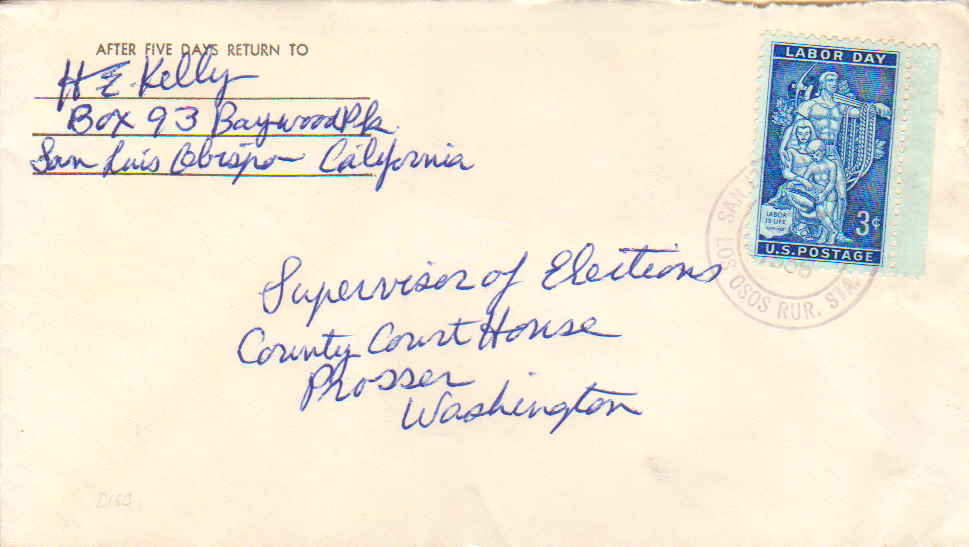 AFTER FIVE DAYS RETURN TO
H E. Kelly
Box 93 Baywood Pk.
San Luis Obispo California
LABOR DAY
LABOR IS LIFE
3¢
U.S. POSTAGE
SAN
LOS OSOS RUR. STA.
Supervisor of Elections
County Court House
Prosser
Washington